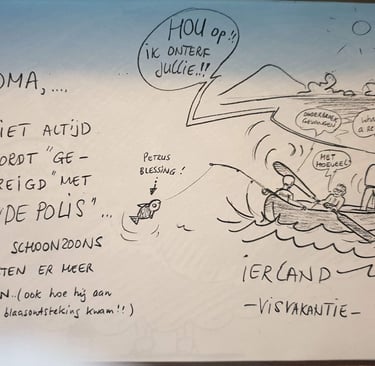 HOU OP!!
IK ONTERF
JULLIE..!!
OMA,....
IET ALTIJD
ORDT "GE-
REIGD" MET
"DE POLIS"...
SCHOONZOONS
TEN ER MEER
N..(OOK HOE HIJ AAN
blaasontsteking KWAM!!)
PETRUS
BLESSING!
GEVANGEN
HET
HOEVEEL
IERLAND
-VISVAKANTIE-